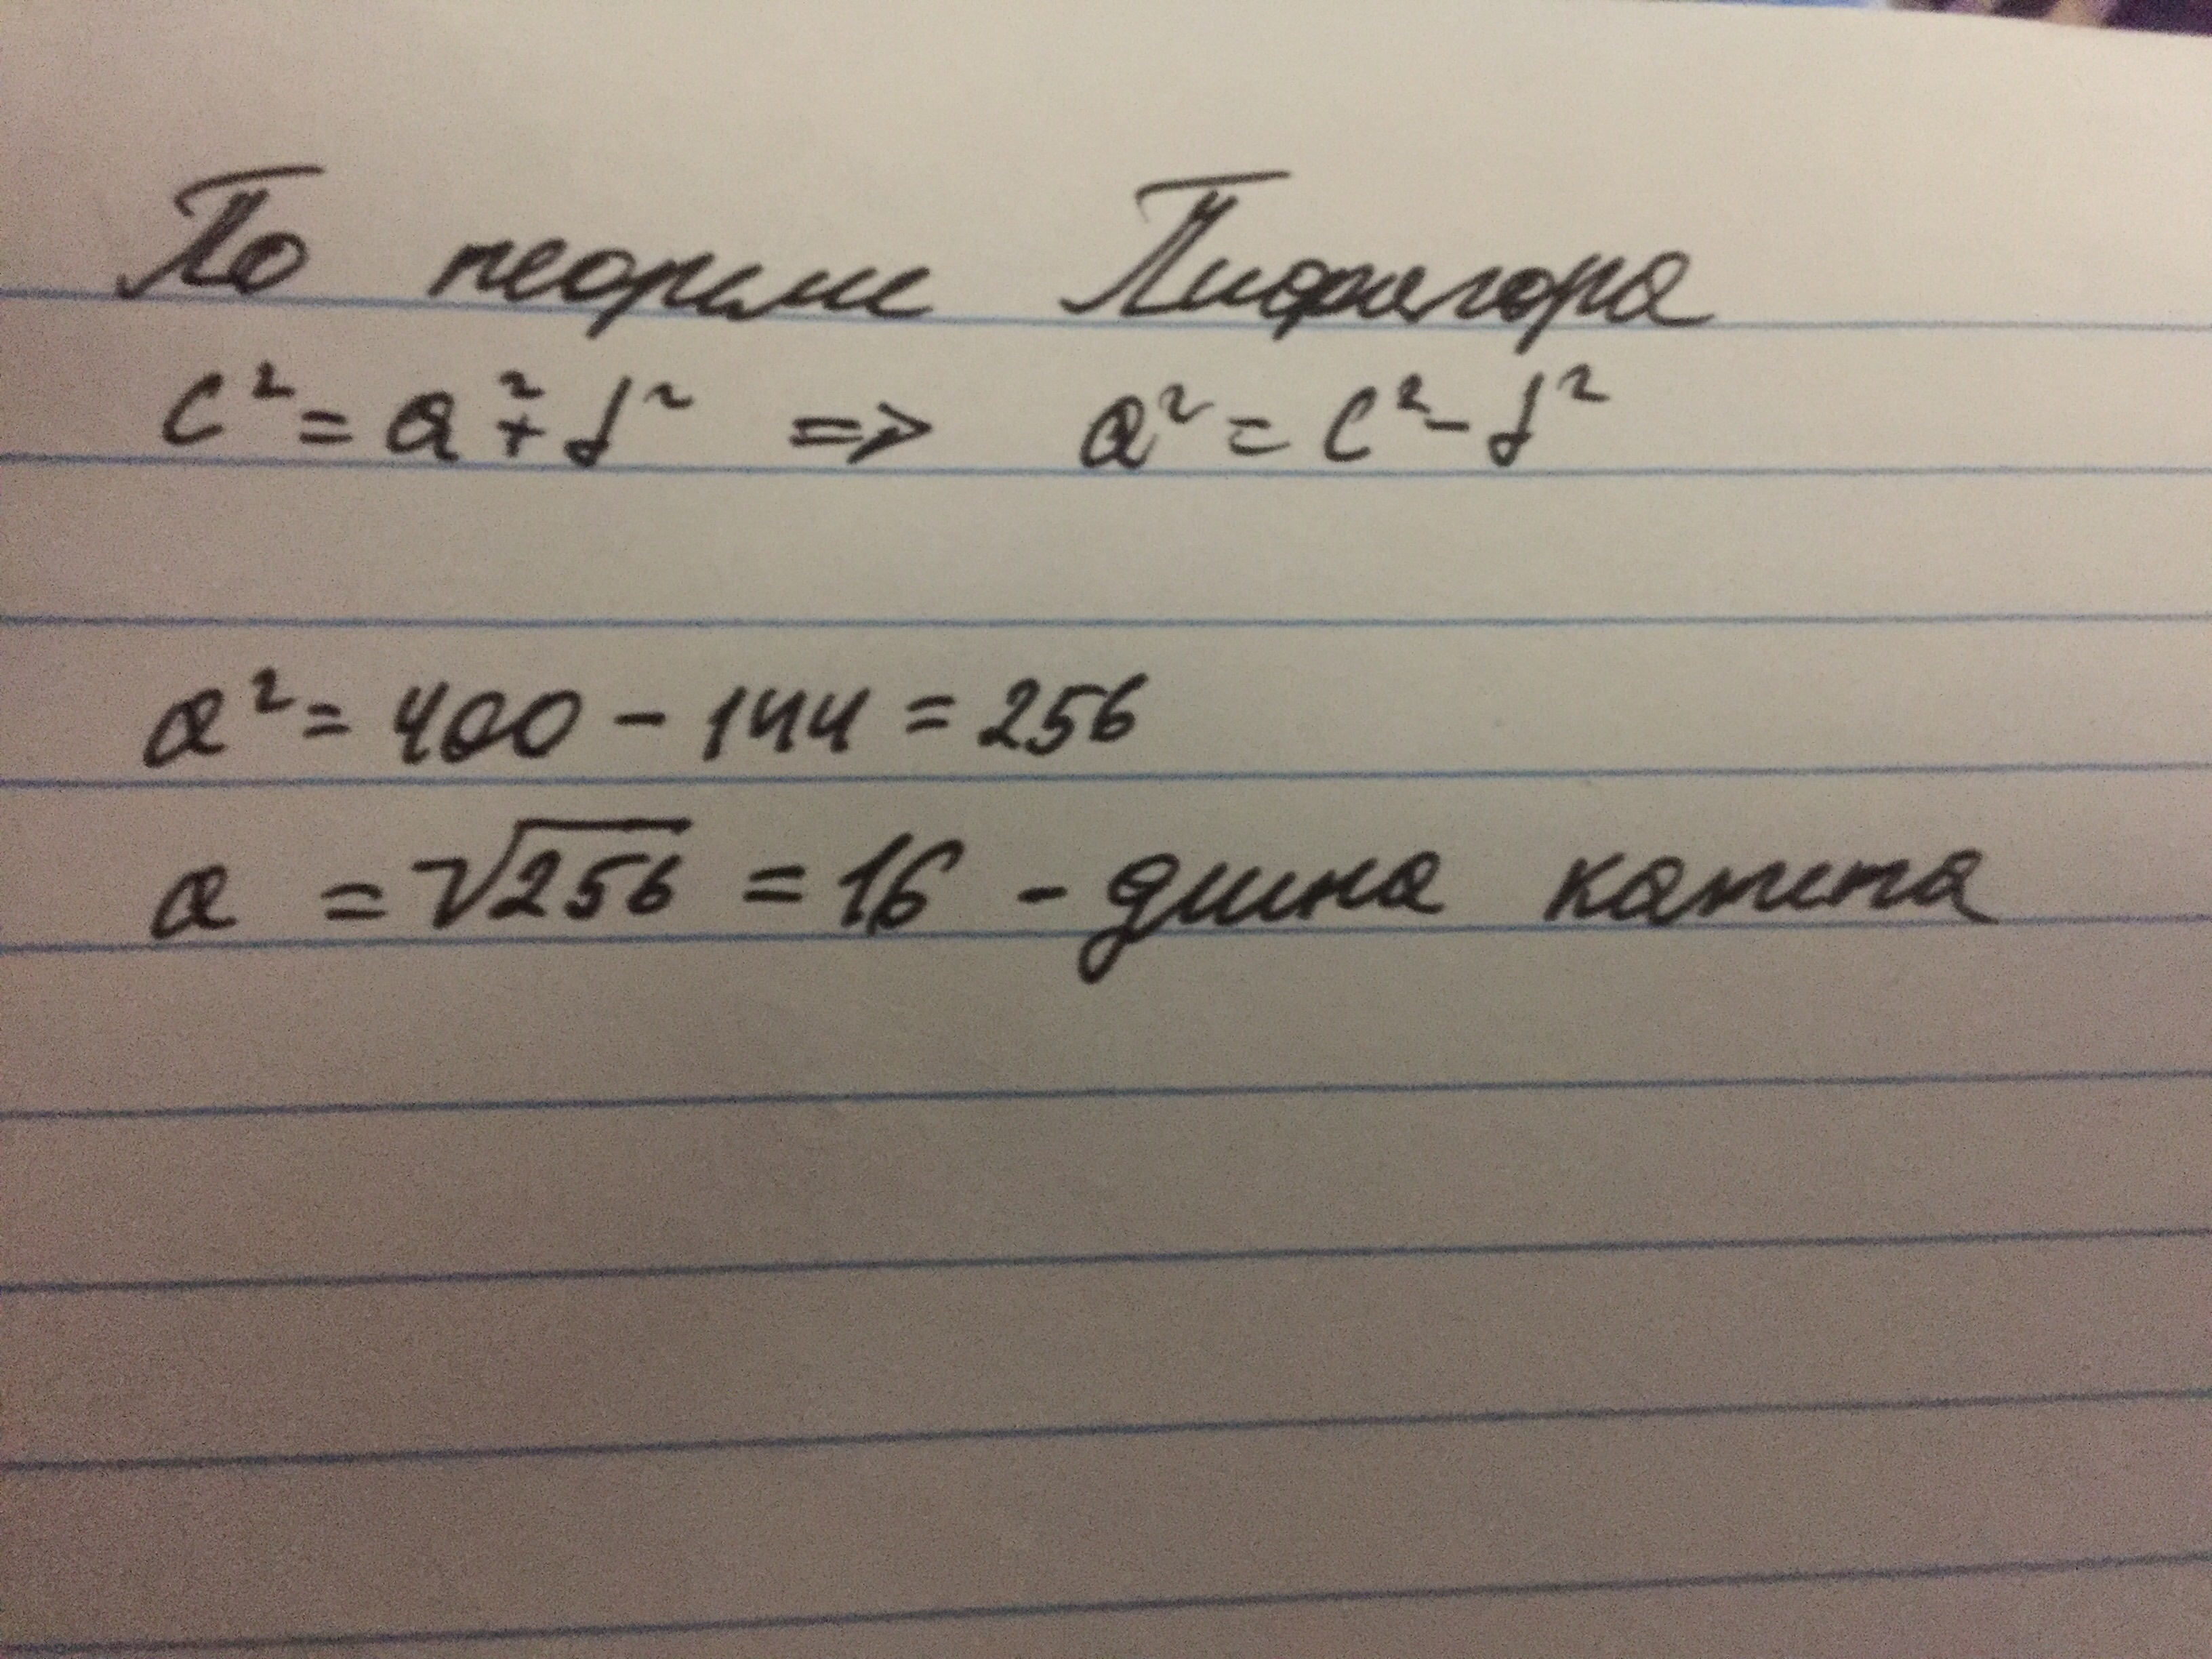 По теореме Пифагора
c² = a² + b² => a² = c² - b²
a² = 400 - 144 = 256
a = √256 = 16 - длина катета